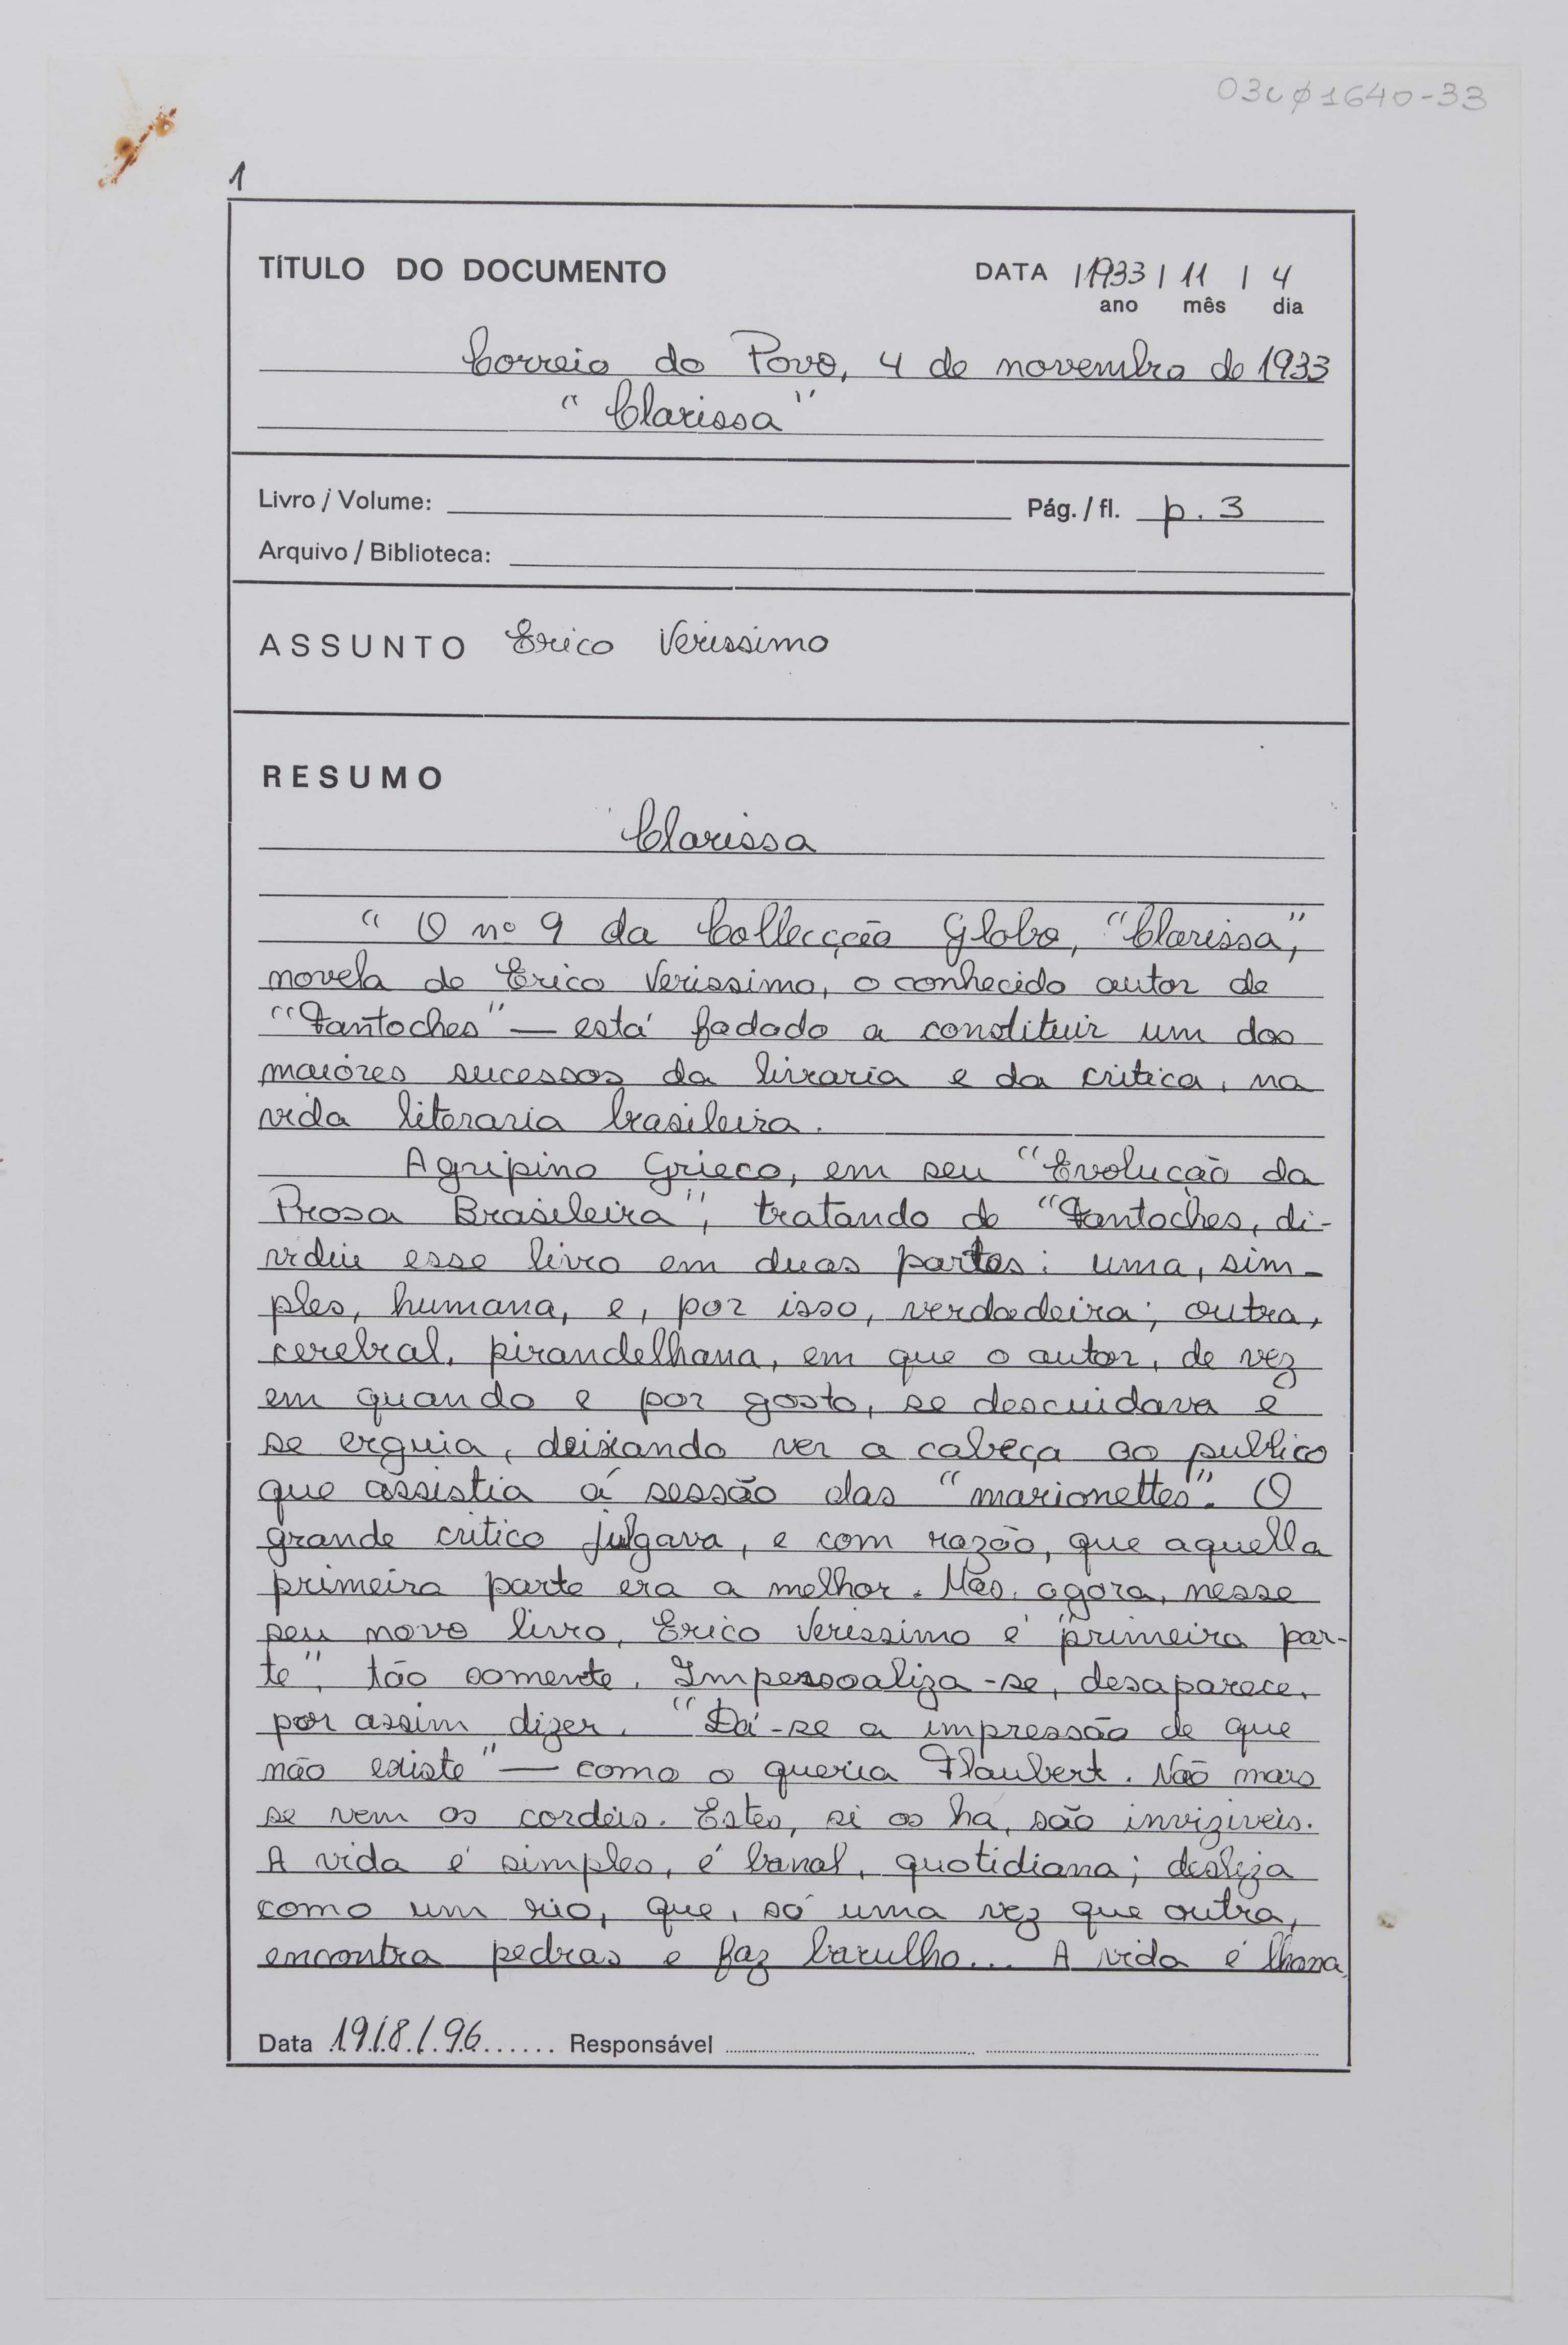 03c01640-33
1
TÍTULO DO DOCUMENTO DATA | 1933 | 11 | 4
ano mês dia
Correio do Povo, 4 de novembro de 1933
"Clarissa"
Livro / Volume: Pág. / fl. p. 3
Arquivo / Biblioteca:
ASSUNTO Erico Verissimo
RESUMO
Clarissa
"O nº 9 da Collecção Globo, "Clarissa",
novela de Erico Verissimo, o conhecido autor de
"Fantoches" — está fadado a constituir um dos
maióres sucessos da livraria e da critica, na
vida literaria brasileira.
Agripino Grieco, em seu "Evolução da
Prosa Brasileira", tratando de "Fantoches, di-
vidiu esse livro em duas partes: uma, sim-
ples, humana, e, por isso, verdadeira; outra,
cerebral, pirandelhana, em que o autor, de vez
em quando e por gosto, se descuidava e
se erguia, deixando ver a cabeça ao publico
que assistia á sessão das "marionettes". O
grande critico julgava, e com razão, que aquella
primeira parte era a melhor. Mas, agora, nesse
seu novo livro, Erico Verissimo é "primeira par-
te", tão somente. Impessoaliza-se, desaparece,
por assim dizer. "Dá-se a impressão de que
não existe" — como o queria Flaubert. Não mais
se vem os cordéis. Estes, si os ha, são inviziveis.
A vida é simples, é banal, quotidiana; desliza
como um rio, que, só uma vez que outra,
encontra pedras e faz barulho... A vida é lhana,
Data 19/8/96 Responsável